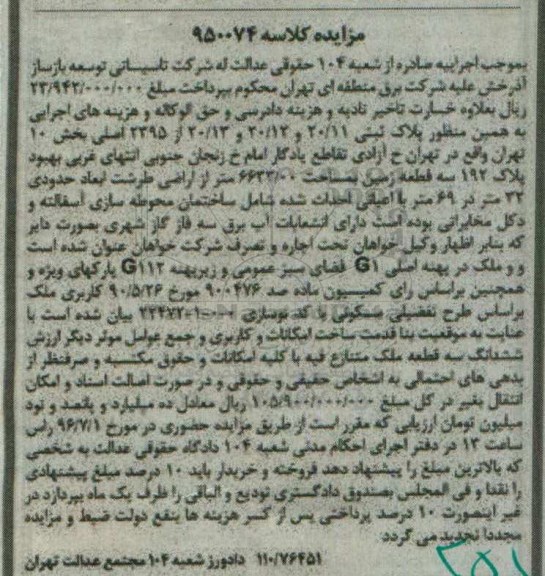 مزایده کلاسه ۹۵۰۰۷۴
بموجب اجراییه صادره از شعبه ۱۰۴ حقوقی عدالت له شرکت تاسیساتی توسعه بازساز
آذرخش علیه شرکت برق منطقه ای تهران محکوم بپرداخت مبلغ ۲۳/۹۴۲/۰۰۰/۰۰۰
ریال بعلاوه خسارت تاخیر تادیه و هزینه دادرسی و حق الوکاله و هزینه های اجرایی
به همین منظور پلاک ثبتی ۲۰/۱۱ و ۲۰/۱۲ و ۲۰/۱۳ از ۲۳۹۵ اصلی بخش ۱۰
تهران واقع در تهران خ آزادی تقاطع یادگار امام خ زنجان جنوبی انتهای غربی بهبود
پلاک ۱۹۲ سه قطعه زمین بمساحت ۶۶۳۳/۰۰ متر از اراضی طرشت ابعاد حدودی
۳۳ متر در ۶۹ متر با اعیانی احداث شده شامل ساختمان محوطه سازی آسفالته و
دکل مخابراتی بوده است دارای انشعابات آب برق سه فاز گاز شهری بصورت دایر
که بنابر اظهار وکیل خواهان تحت اجاره و تصرف شرکت خواهان عنوان شده است
و و ملک در پهنه اصلی G۱ فضای سبز عمومی و زیرپهنه G۱۱۲ پارکهای ویژه و
همچنین براساس رای کمیسیون ماده صد ۹۰۰۴۷۶ مورخ ۹۰/۵/۲۶ کاربری ملک
براساس طرح تفضیلی مسکونی با کد نوسازی ۲۲۴۷۲-۱-۰۰۰ بیان شده است با
عنایت به موقعیت بنا قدمت ساخت امکانات و کاربری و جمع عوامل موثر دیگر ارزش
ششدانگ سه قطعه ملک متنازع فیه با کلیه امکانات و حقوق مکتسبه و صرفنظر از
بدهی های احتمالی به اشخاص حقیقی و حقوقی و در صورت اصالت اسناد و امکان
انتقال بغیر در کل مبلغ ۱۰۵/۹۰۰/۰۰۰/۰۰۰ ریال معادل ده میلیارد و پانصد و نود
میلیون تومان ارزیابی که مقرر است از طریق مزایده حضوری در مورخ ۹۶/۷/۱ راس
ساعت ۱۳ در دفتر اجرای احکام مدنی شعبه ۱۰۴ دادگاه حقوقی عدالت به شخصی
که بالاترین مبلغ را پیشنهاد دهد فروخته و خریدار باید ۱۰ درصد مبلغ پیشنهادی
را نقدا و فی المجلس بصندوق دادگستری تودیع و الباقی را ظرف یک ماه بپردازد در
غیر اینصورت ۱۰ درصد پرداختی پس از کسر هزینه ها بنفع دولت ضبط و مزایده
مجددا تجدید می گردد
۱۱۰/۷۶۴۵۱ دادورز شعبه ۱۰۴ مجتمع عدالت تهران